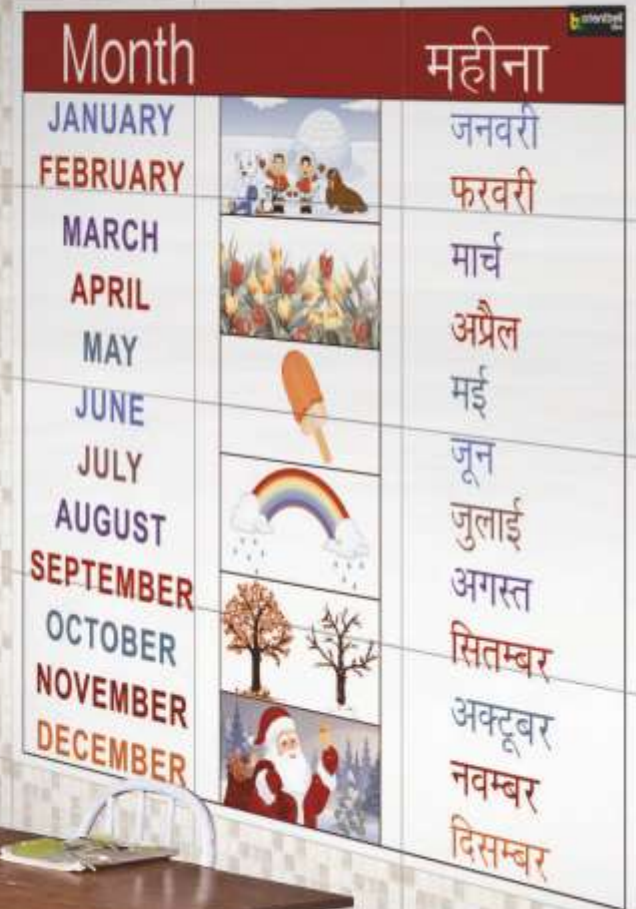 Month महीना
JANUARY जनवरी
FEBRUARY फरवरी
MARCH मार्च
APRIL अप्रैल
MAY मई
JUNE जून
JULY जुलाई
AUGUST अगस्त
SEPTEMBER सितम्बर
OCTOBER अक्टूबर
NOVEMBER नवम्बर
DECEMBER दिसम्बर